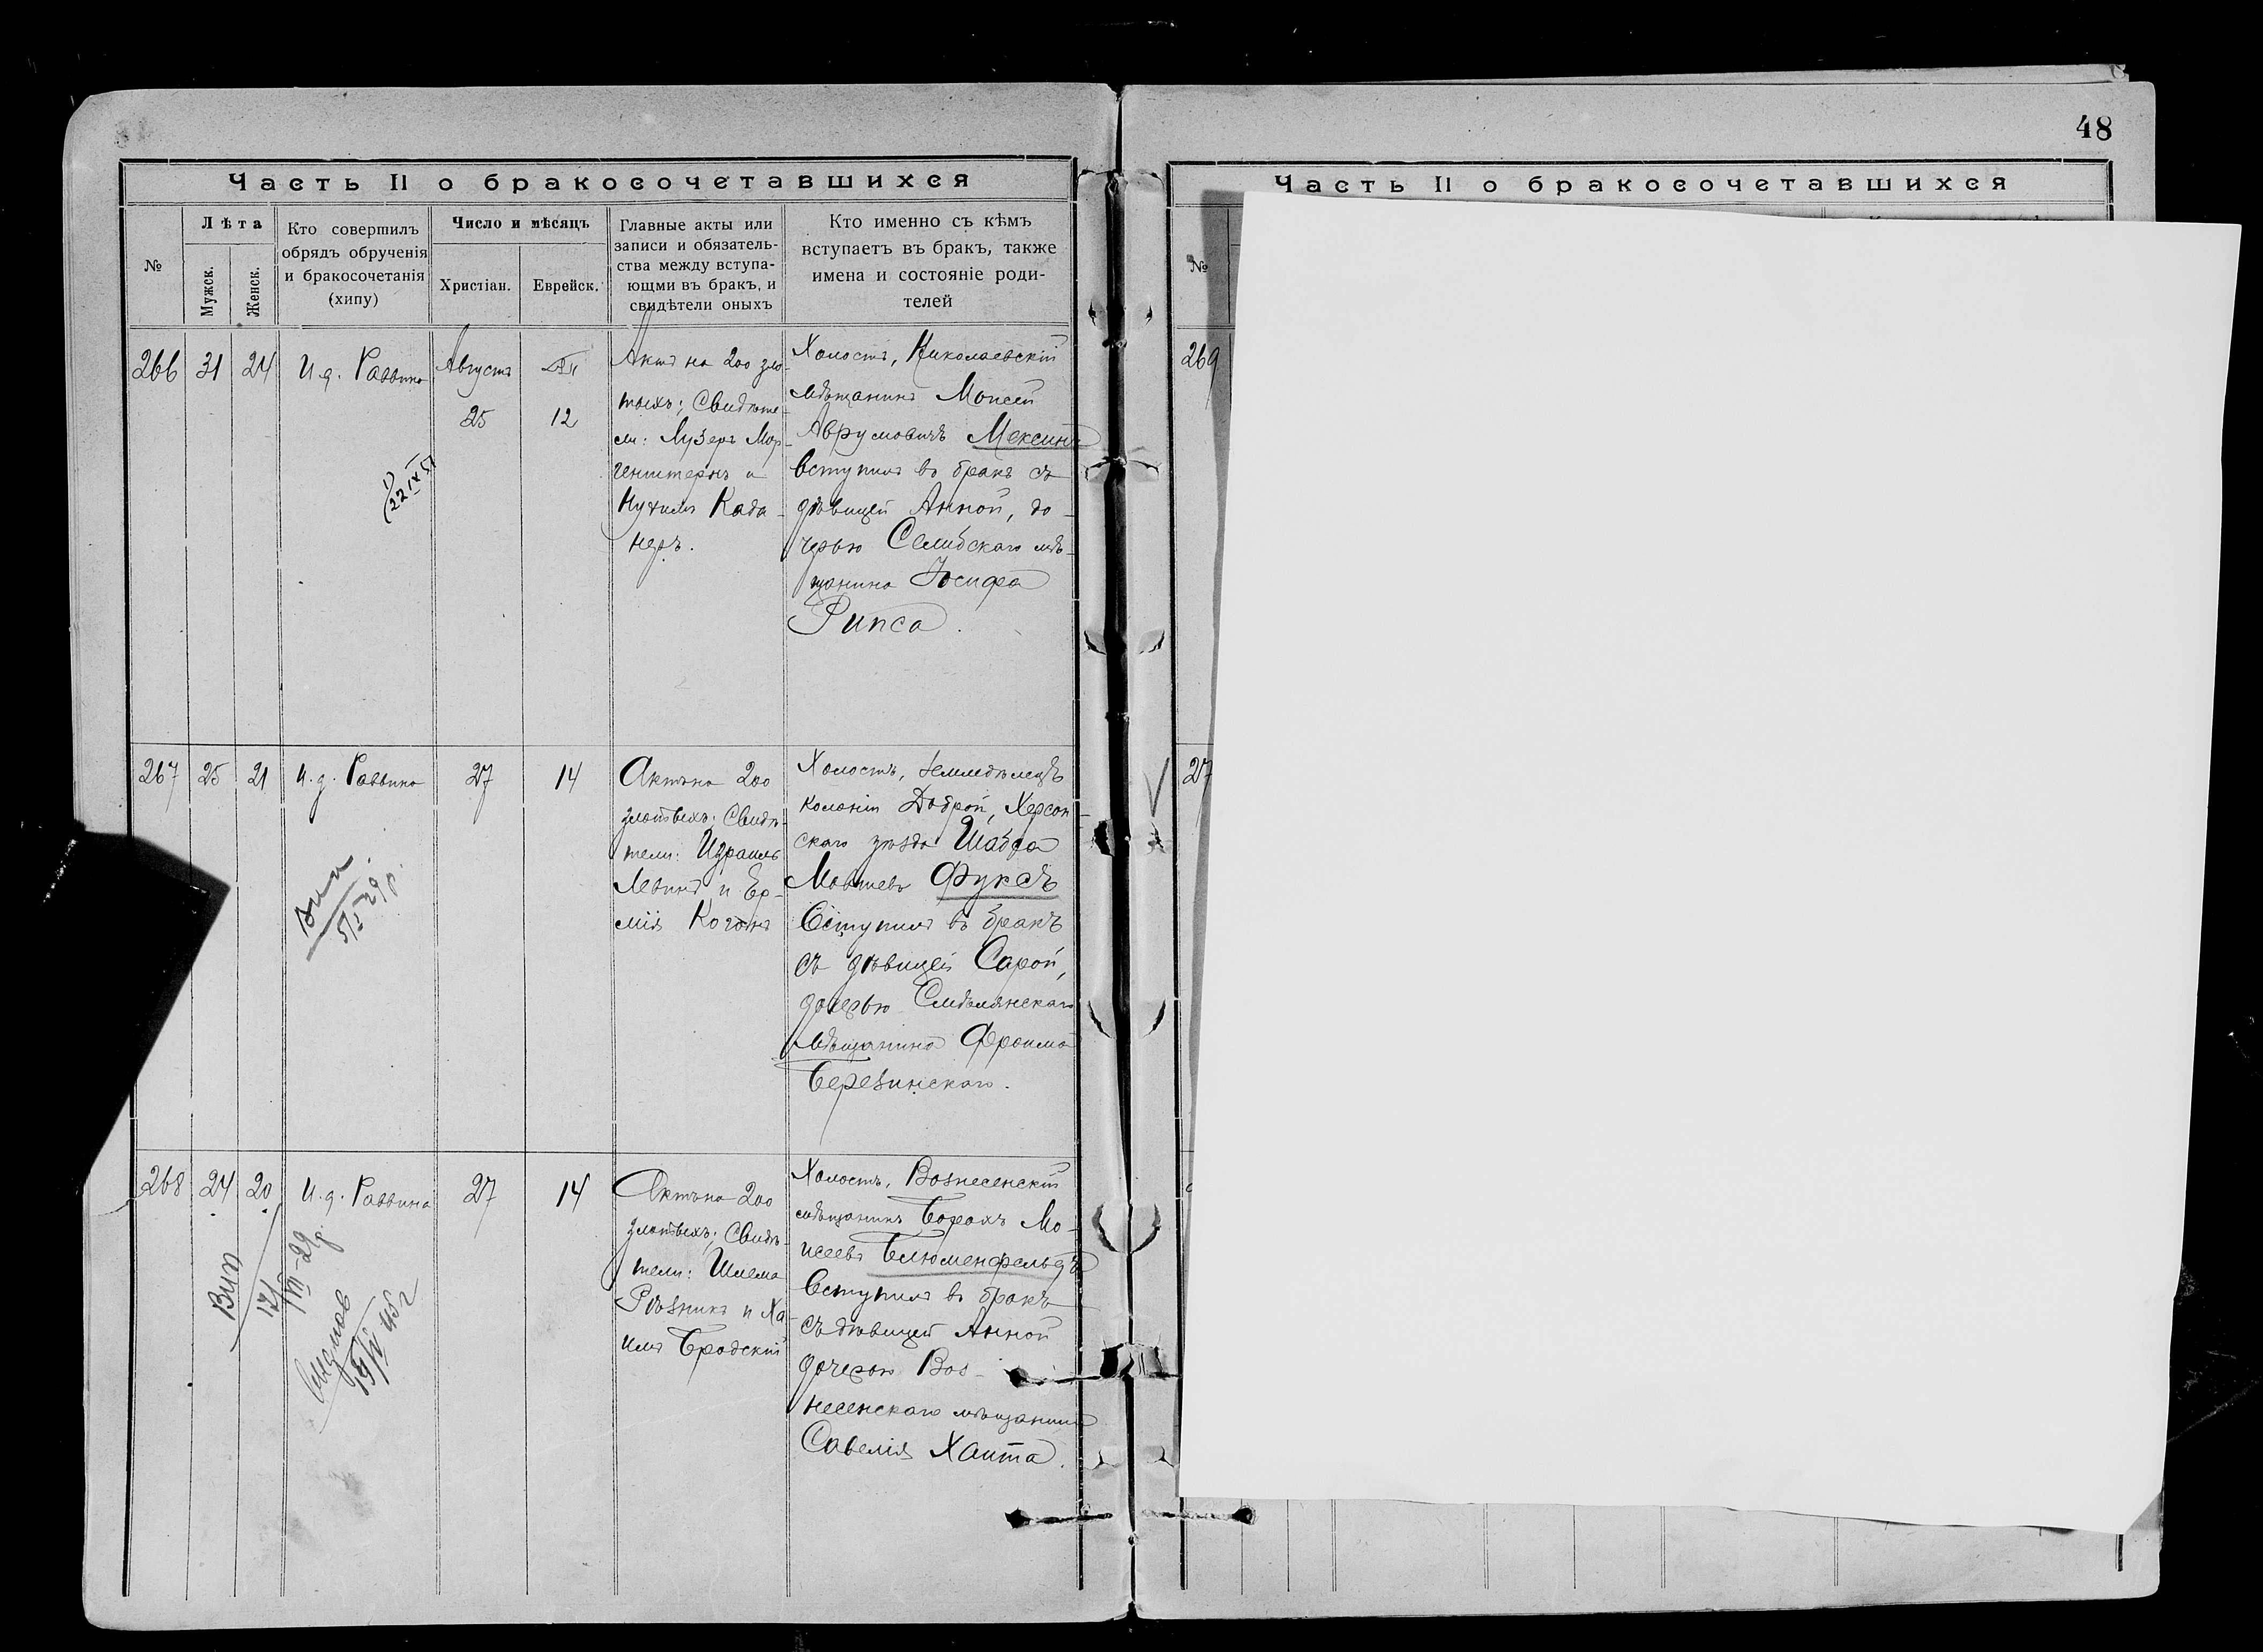 48
Часть II о бракосочетавшихся
№
Лѣта
Мужск.
Женск.
Кто совершилъ
обрядъ обрученія
и бракосочетанія
(хипу)
Число и мѣсяцъ
Христіан.
Еврейск.
Главные акты или
записи и обязатель-
ства между вступа-
ющми въ бракъ, и
свидѣтели оныхъ
Кто именно съ кѣмъ
вступаетъ въ бракъ, также
имена и состояніе роди-
телей
266
31
24
И.д. Раввина
Августъ
25
12
22 IX 51
Актъ на 200 зло-
тыхъ; Свидѣте-
ли: Лузеръ Мор-
генштернъ и
Нухимъ Када-
неръ.
Холостъ, Николаевскій
мѣщанинъ Моисей
Аврумовичъ Мексинъ
вступилъ въ бракъ съ
дѣвицей Анной, до-
черью мѣ-
щанина Іосифа
Рипса.
267
25
21
И.д. Раввина
27
14
Актъ на 200
злотыхъ; Свидѣ-
тели: Израиль
Левинъ и Ер-
мія Коганъ
Холостъ, земледѣлецъ
колоніи Доброй, Херсон-
скаго уѣзда Шабса
Мовшевъ Фуксъ
Вступилъ въ бракъ
съ дѣвицей Сарой,
дочерью Смѣлянскаго
мѣщанина Фроима
Березинскаго.
268
24
20
И.д. Раввина
27
14
Актъ на 200
злотыхъ; Свидѣ-
тели: Шлема
Рѣзникъ и Ха-
имъ Бродскій
Холостъ, Вознесенскій
мѣщанинъ Борохъ Мо-
исеевъ Блюменфельдъ
Вступилъ въ бракъ
съ дѣвицей Анной
дочерью Воз-
несенскаго мѣщанина
Савелія Хаита.
Часть II о бракосочетавшихся
№
269
27